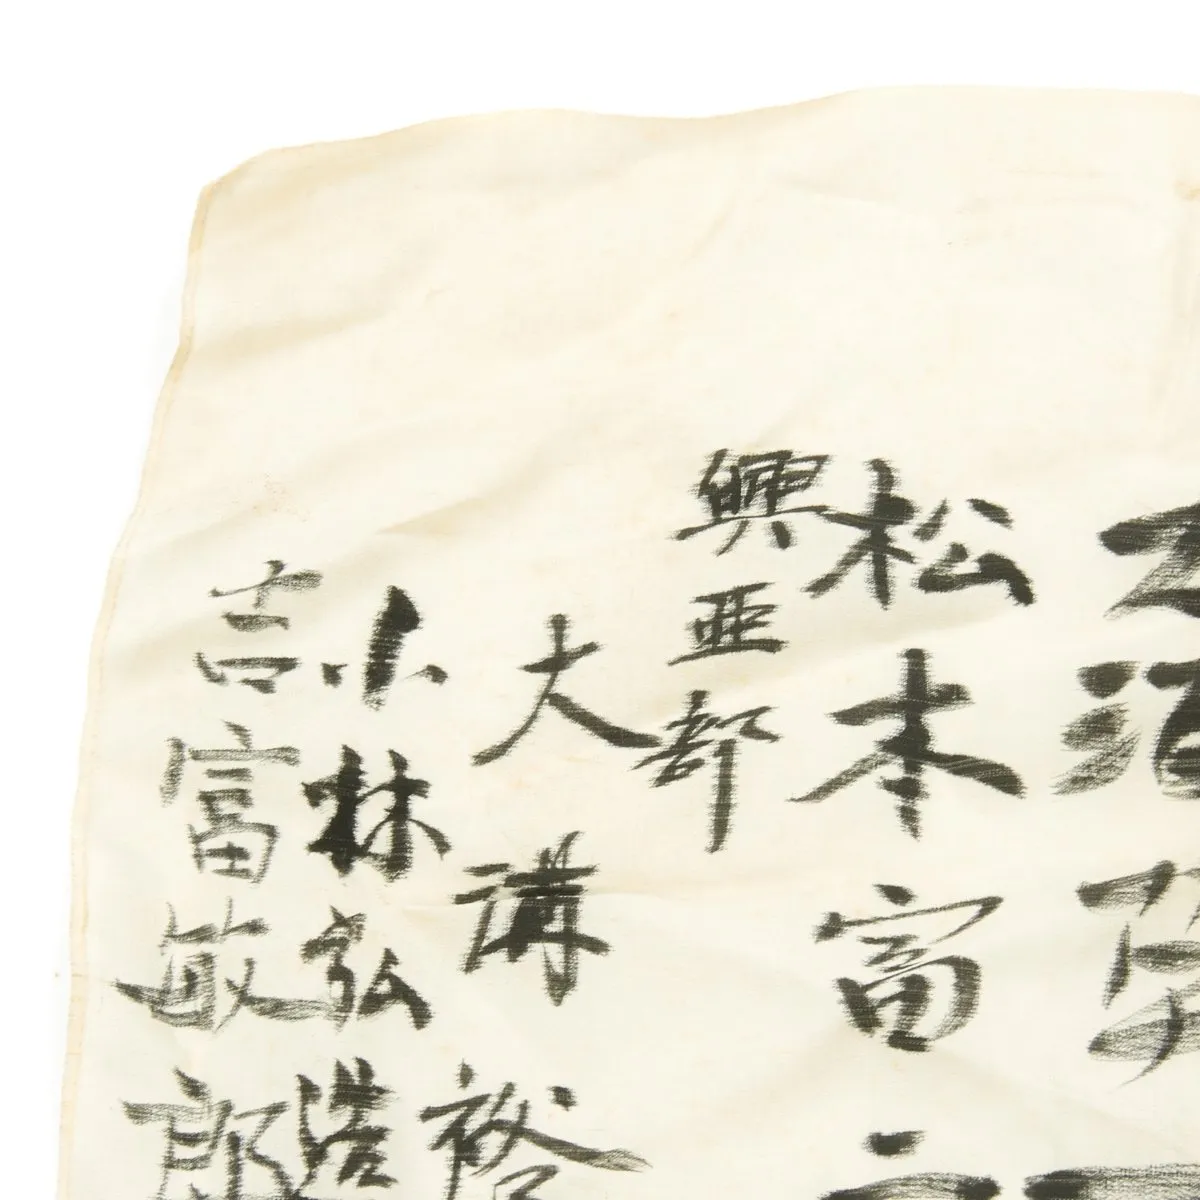 松本富
興亜部
大溝裕
小林弘浩
吉富敏郎